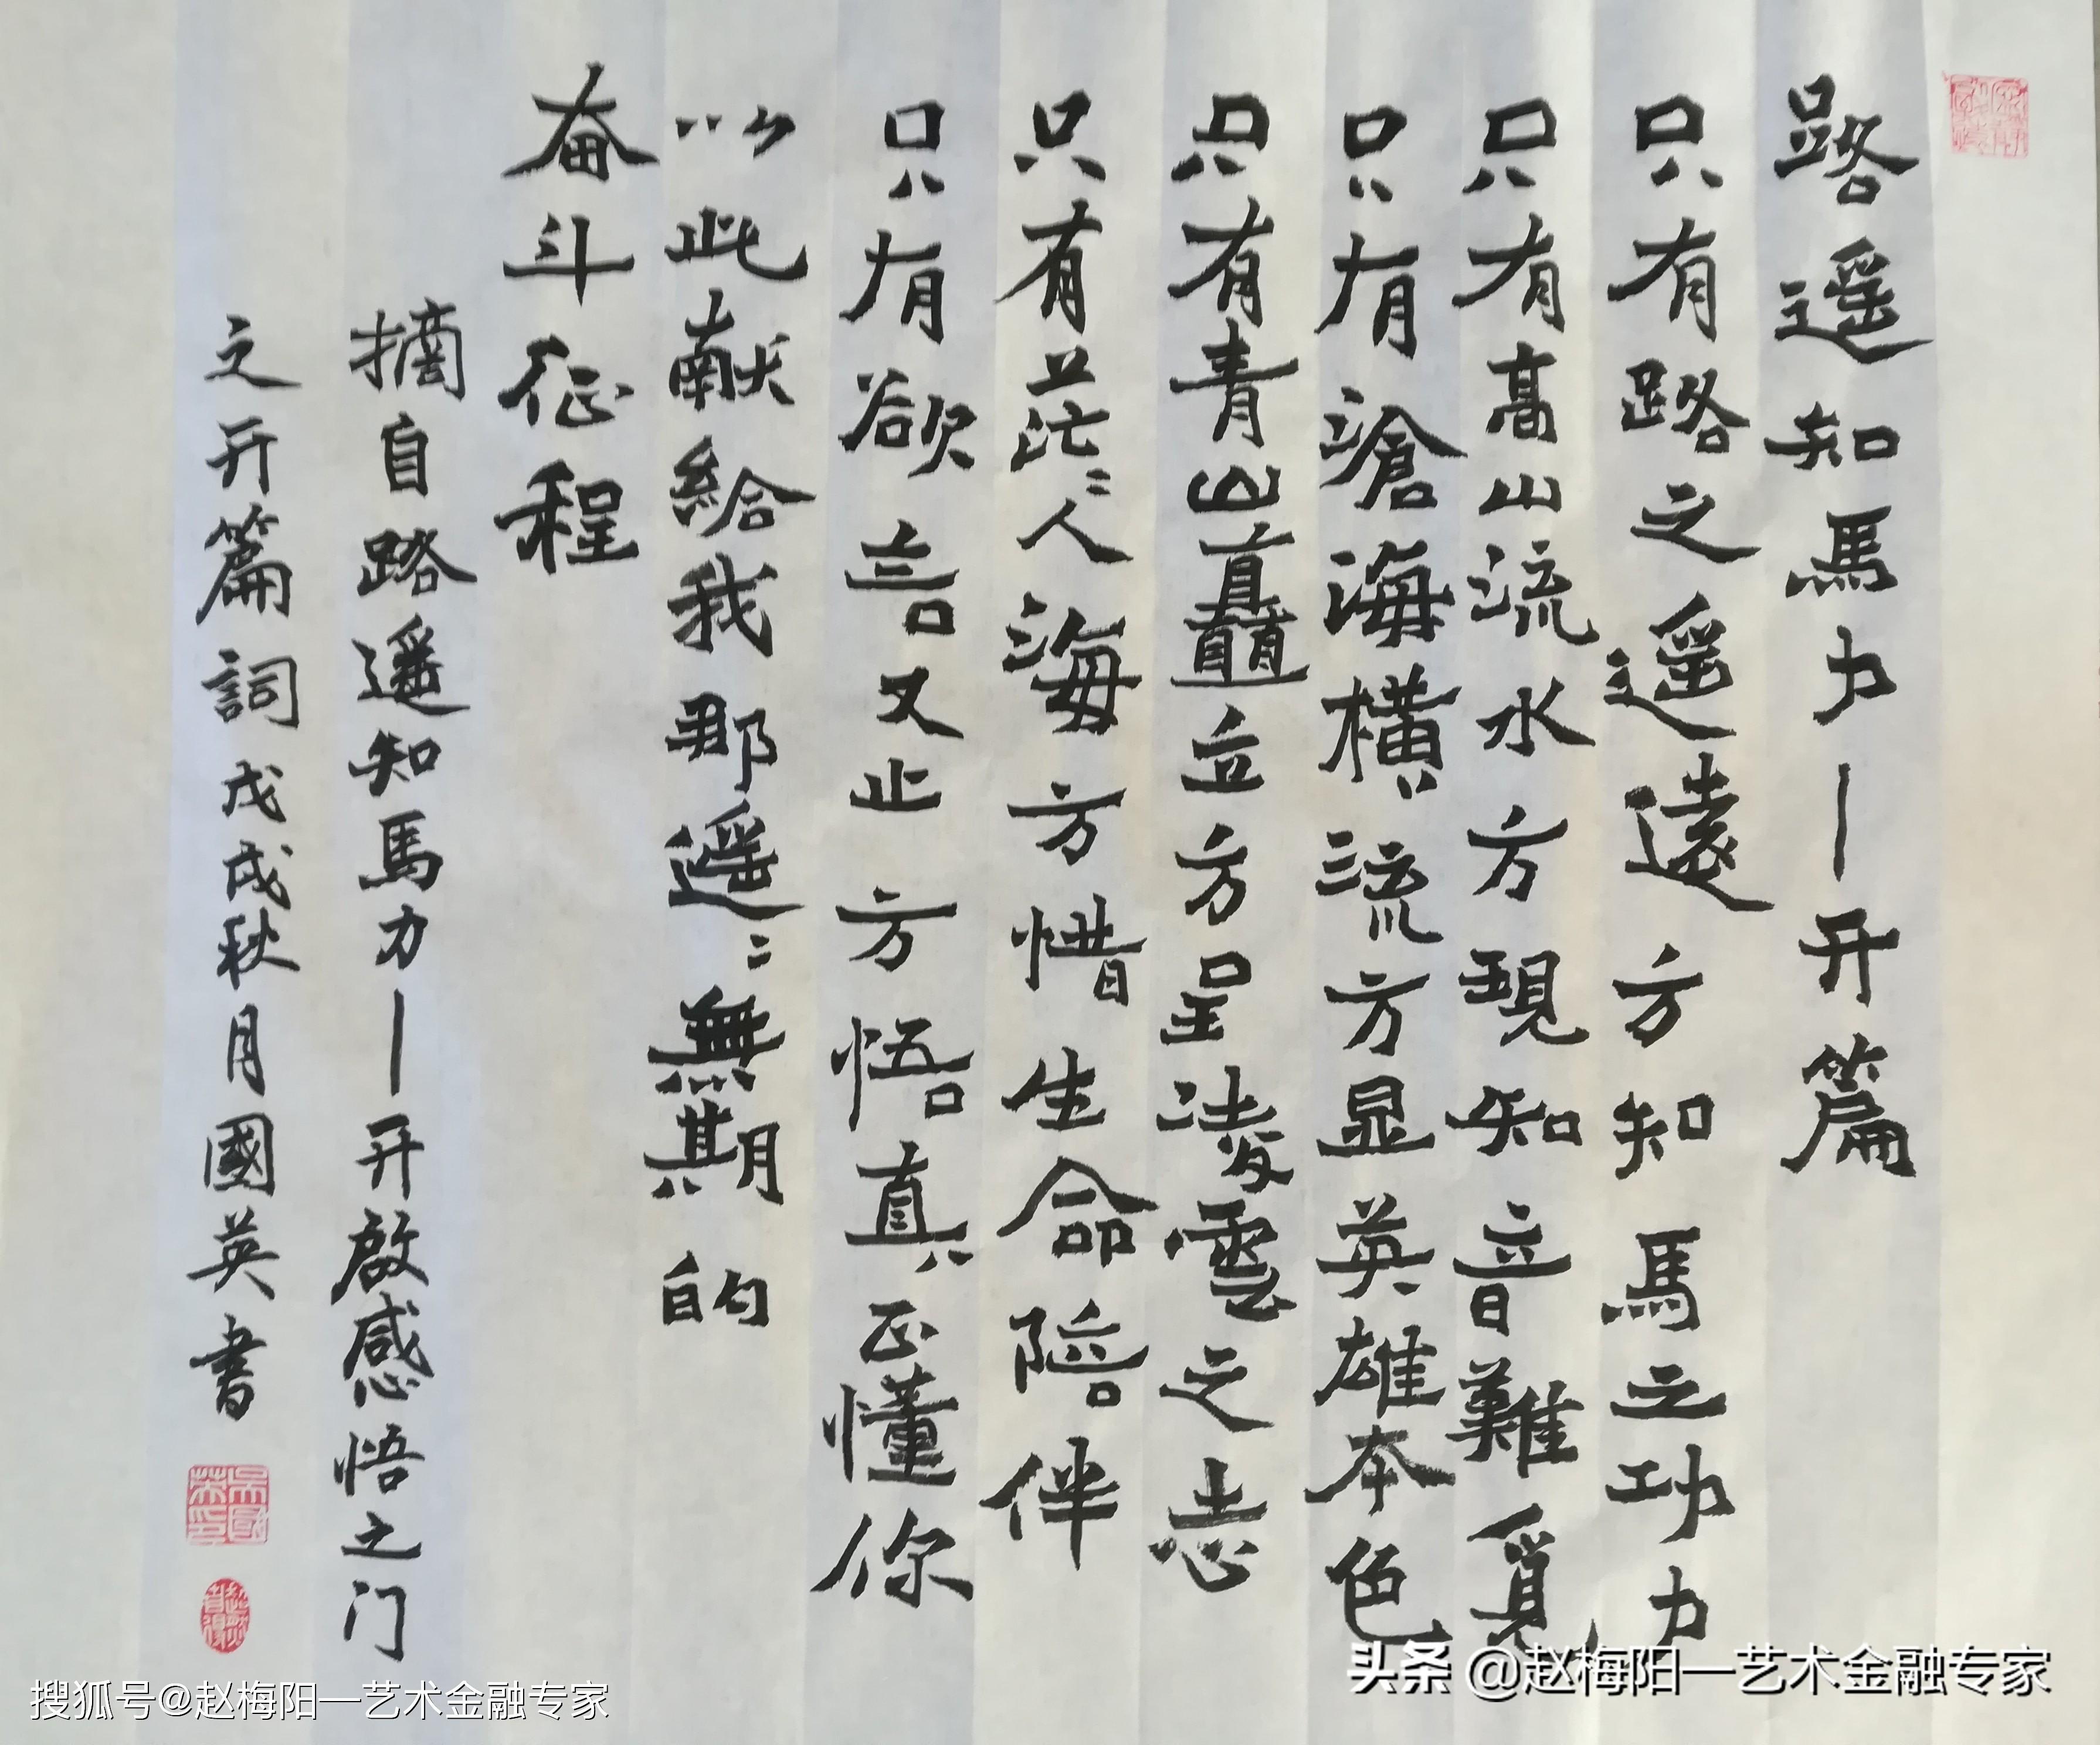 路遥知馬力—开篇
只有路之遥遠方知馬之功力
只有高山流水方現知音難覓
只有滄海横流方显英雄本色
只有青山矗立方呈凌雲之志
只有茫〻人海方惜生命陪伴
只有欲言又止方悟真正懂你
以此献給我那遥〻無期的
奋斗征程
摘自路遥知馬力—开啟感悟之门
之开篇詞戊戌秋月國英書
头条 @赵梅阳—艺术金融专家
搜狐号@赵梅阳—艺术金融专家